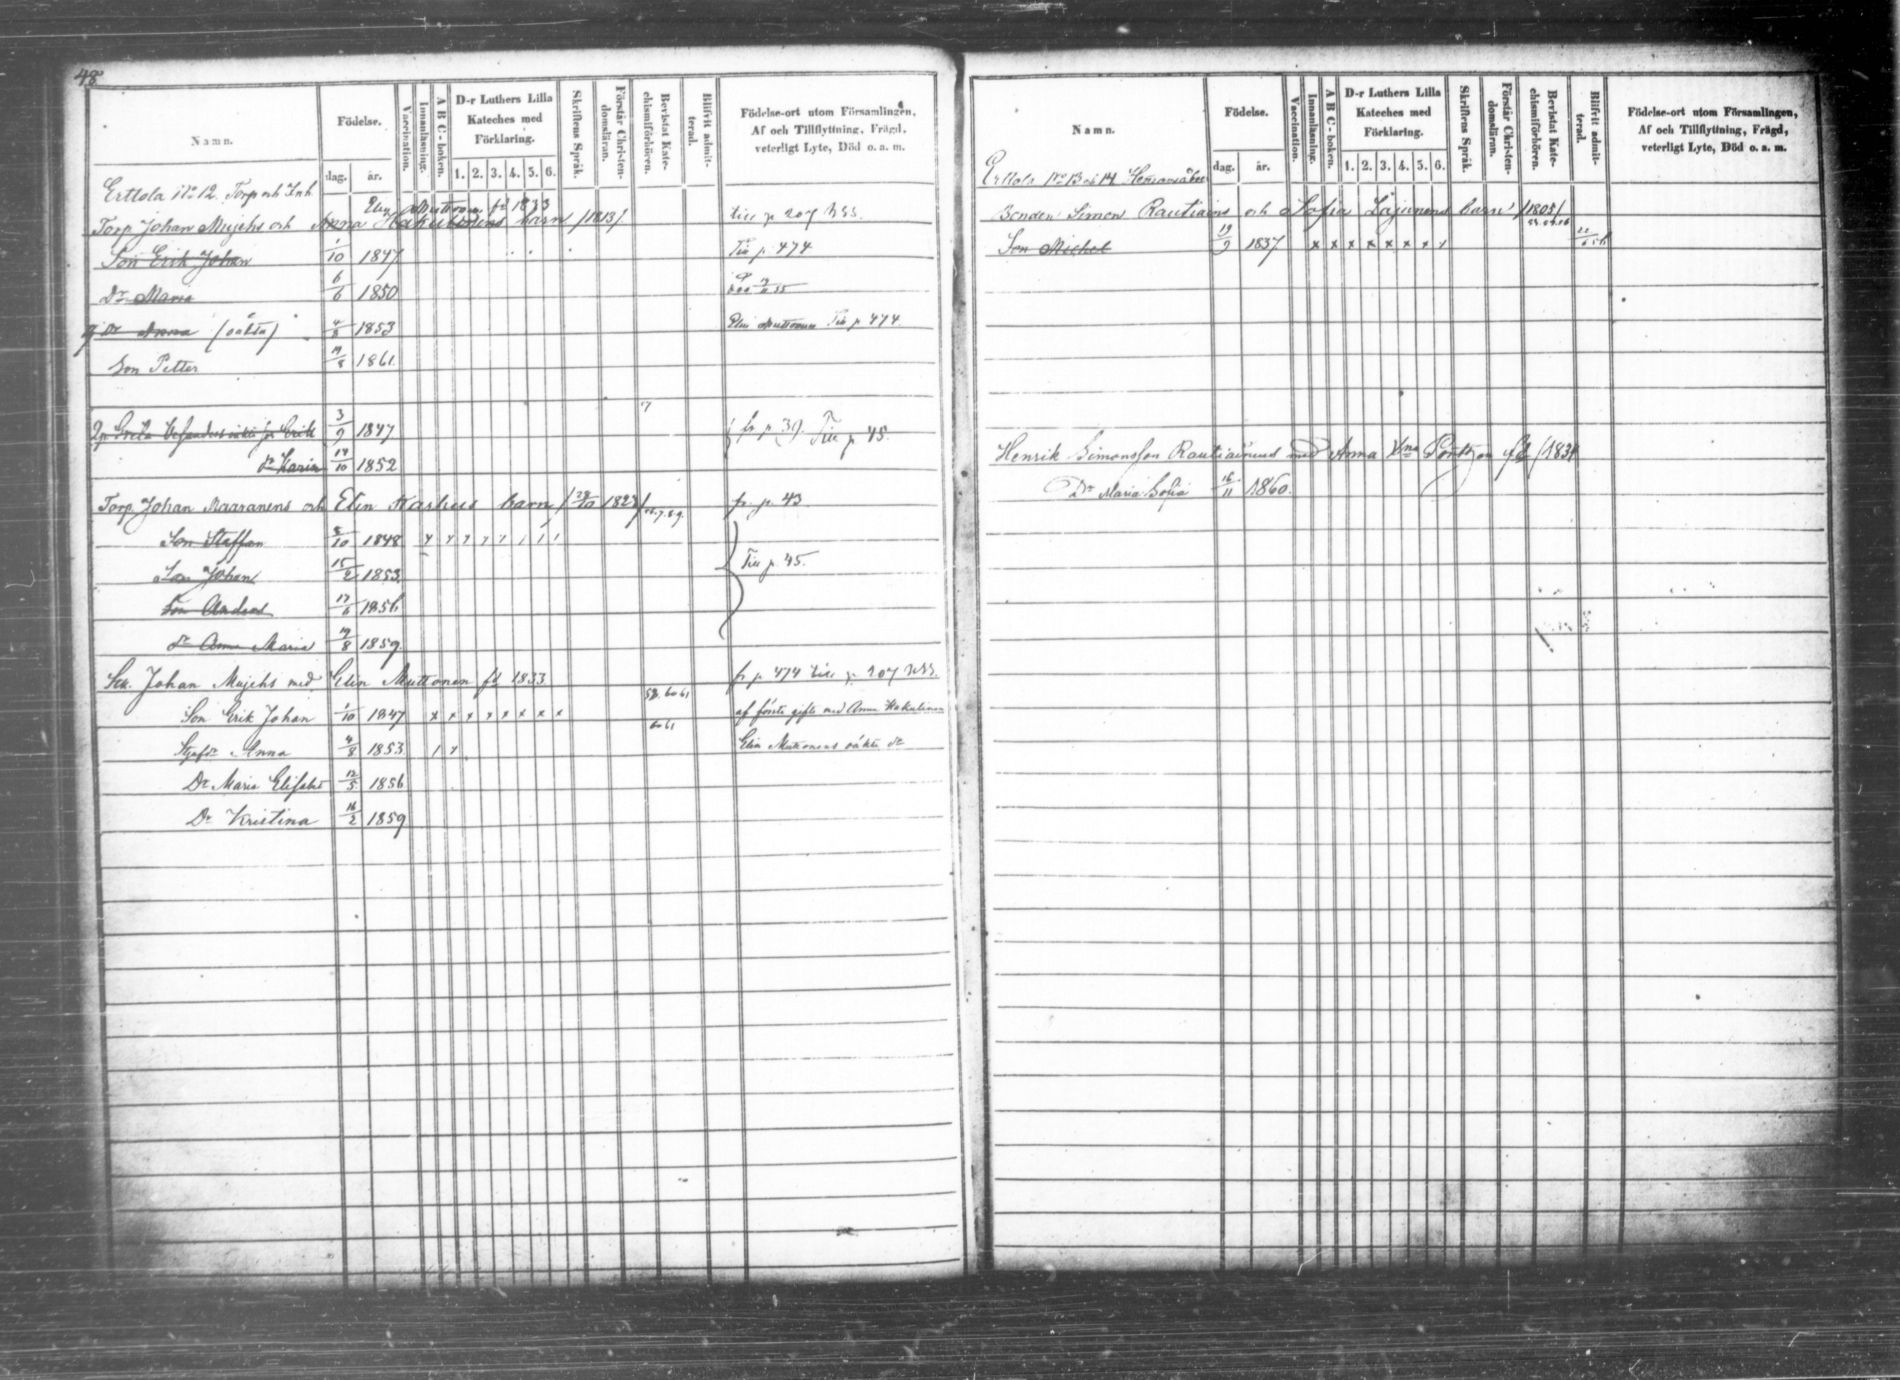 48
Namn.
Födelse.
dag.
år.
Vaccination.
Innanläsning.
A B C-boken.
D-r Luthers Lilla Kateches med Förklaring.
1. 2. 3. 4. 5. 6.
Skriftens Språk.
Förstår Christendomsläran.
Bevistat Katechismiförhören.
Blifvit admitterad.
Födelse-ort utom Församlingen, Af och Tillflyttning, Frägd, veterligt Lyte, Död o. a. m.
Erttola No 12. Torp och Inh.
Elin Muttonen fd 1833
Torp. Johan Mujehs och Anna Hakulinens barn /1813/ till p 207
Son Erik Johan 1/10 1847 Till p. 474
Dr Maria 6/6 1850
Dr Anna (oäkta) 4/8 1853 Elin Muttonens Till p 474.
Son Petter 19/8 1861.
Erik 3/9 1847. fr p. 39. Till p. 45.
dr Karin 14/10 1852
Torp. Johan Maaranens och Elin Karhus barn /28/10 1823/ fr. p. 43.
Son Staffan 8/10 1848 x x x x x
Son Johan 15/2 1853. Till p. 45.
Son Anders 17/6 1856
dr Anna Maria 19/8 1859.
Johan Mujehs med Elin Muttonen fd 1833 fr p 474 till p. 207
58. 60 61
Son Erik Johan 1/10 1847 x x x x x x x x af förste gifte med Anna Hakulinen
60 61
Styfdr Anna 4/8 1853 Elin Muttonens oäkta dr
Dr Maria Elisabet 12/5 1856
Dr Kristina 16/2 1859
Namn.
Födelse.
dag.
år.
Vaccination.
Innanläsning.
A B C-boken.
D-r Luthers Lilla Kateches med Förklaring.
1. 2. 3. 4. 5. 6.
Skriftens Språk.
Förstår Christendomsläran.
Bevistat Katechismiförhören.
Blifvit admitterad.
Födelse-ort utom Församlingen, Af och Tillflyttning, Frägd, veterligt Lyte, Död o. a. m.
Erttola No 13 och 14
Bonden Simon Rautiains och Sofia Lajunens barn /1805/
Son Michel 19/9 1837 x x x x x x x x
Henrik Simonsson Rautiainen med Anna fd /1834
Dr Maria Sofia 16/11 1860.